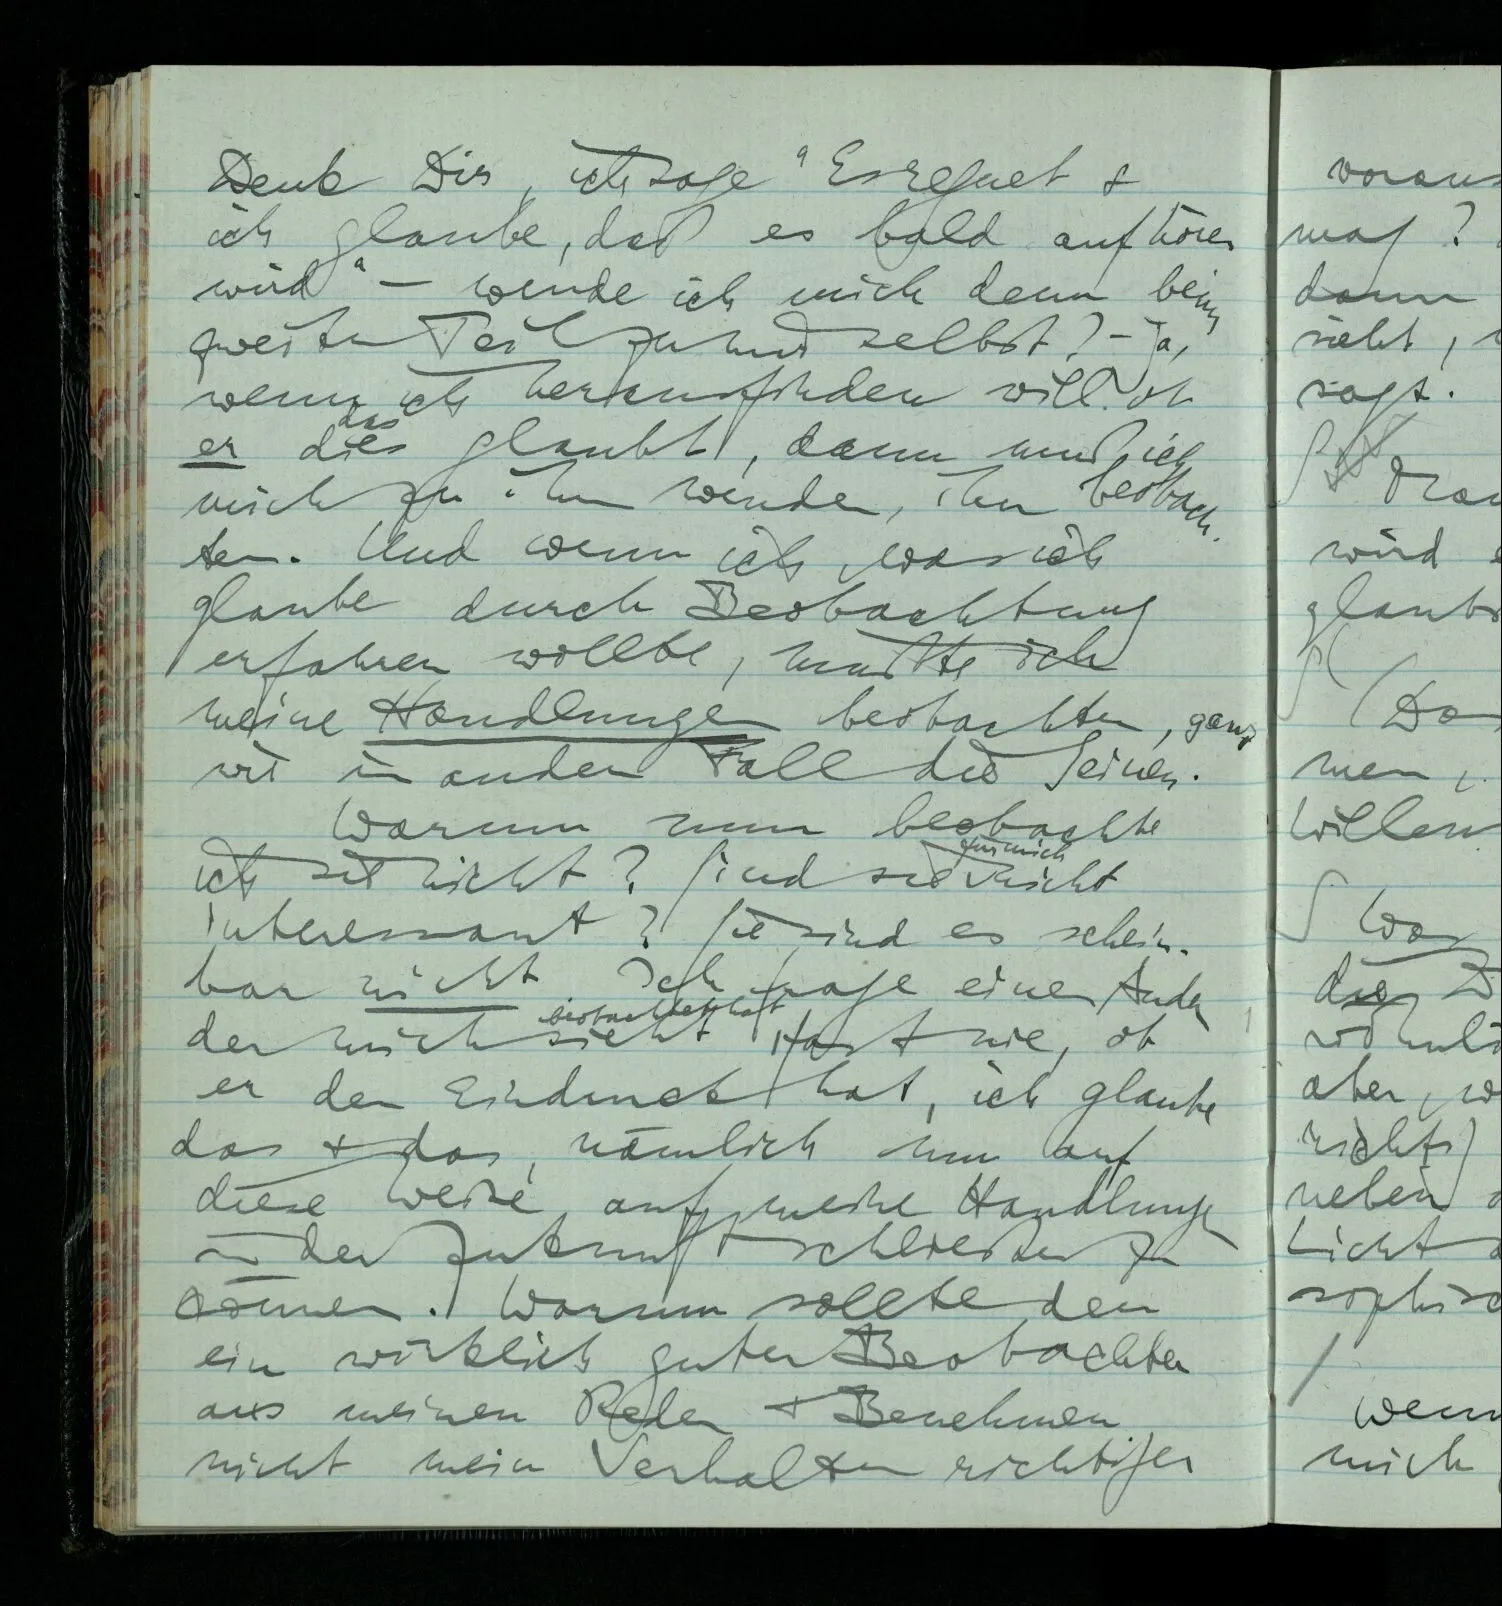 Denk Dir, ich sage „Es regnet &
ich glaube, daß es bald aufhören
wird“ – wende ich mich denn beim
zweiten Teil zu mir selbst? – Ja,
wenn ich herausfinden will ob
das
er dies glaubt, dann muß ich
mich zu ihm wenden, ihn beobach-
ten. Und wenn ich, was ich
glaube durch Beobachtung
erfahren wollte, müßte ich
meine Handlungen beobachten, ganz
wie im andern Fall die Seinen.
Warum nun beobachte
ich sie nicht? Sind sie nicht
für mich
interessant? Sie sind es schein-
bar nicht. Ich frage einen Andern
beobachtet hat
der mich sieht fast nie, ob
er den Eindruck hat, ich glaube
das & das, nämlich um auf
diese Weise auf meine Handlungen
in der Zukunft schließen zu
können. Warum sollte den
ein wirklich guter Beobachter
aus meinen Reden & Benehmen
nicht mein Verhalten richtiger
voraus
mag?
dann
nicht,
sagt.
wird
glaub
(Da
men,
Willen
Was
die
aber, w
nichts)
neben
Licht
sophisc
Wenn
mich